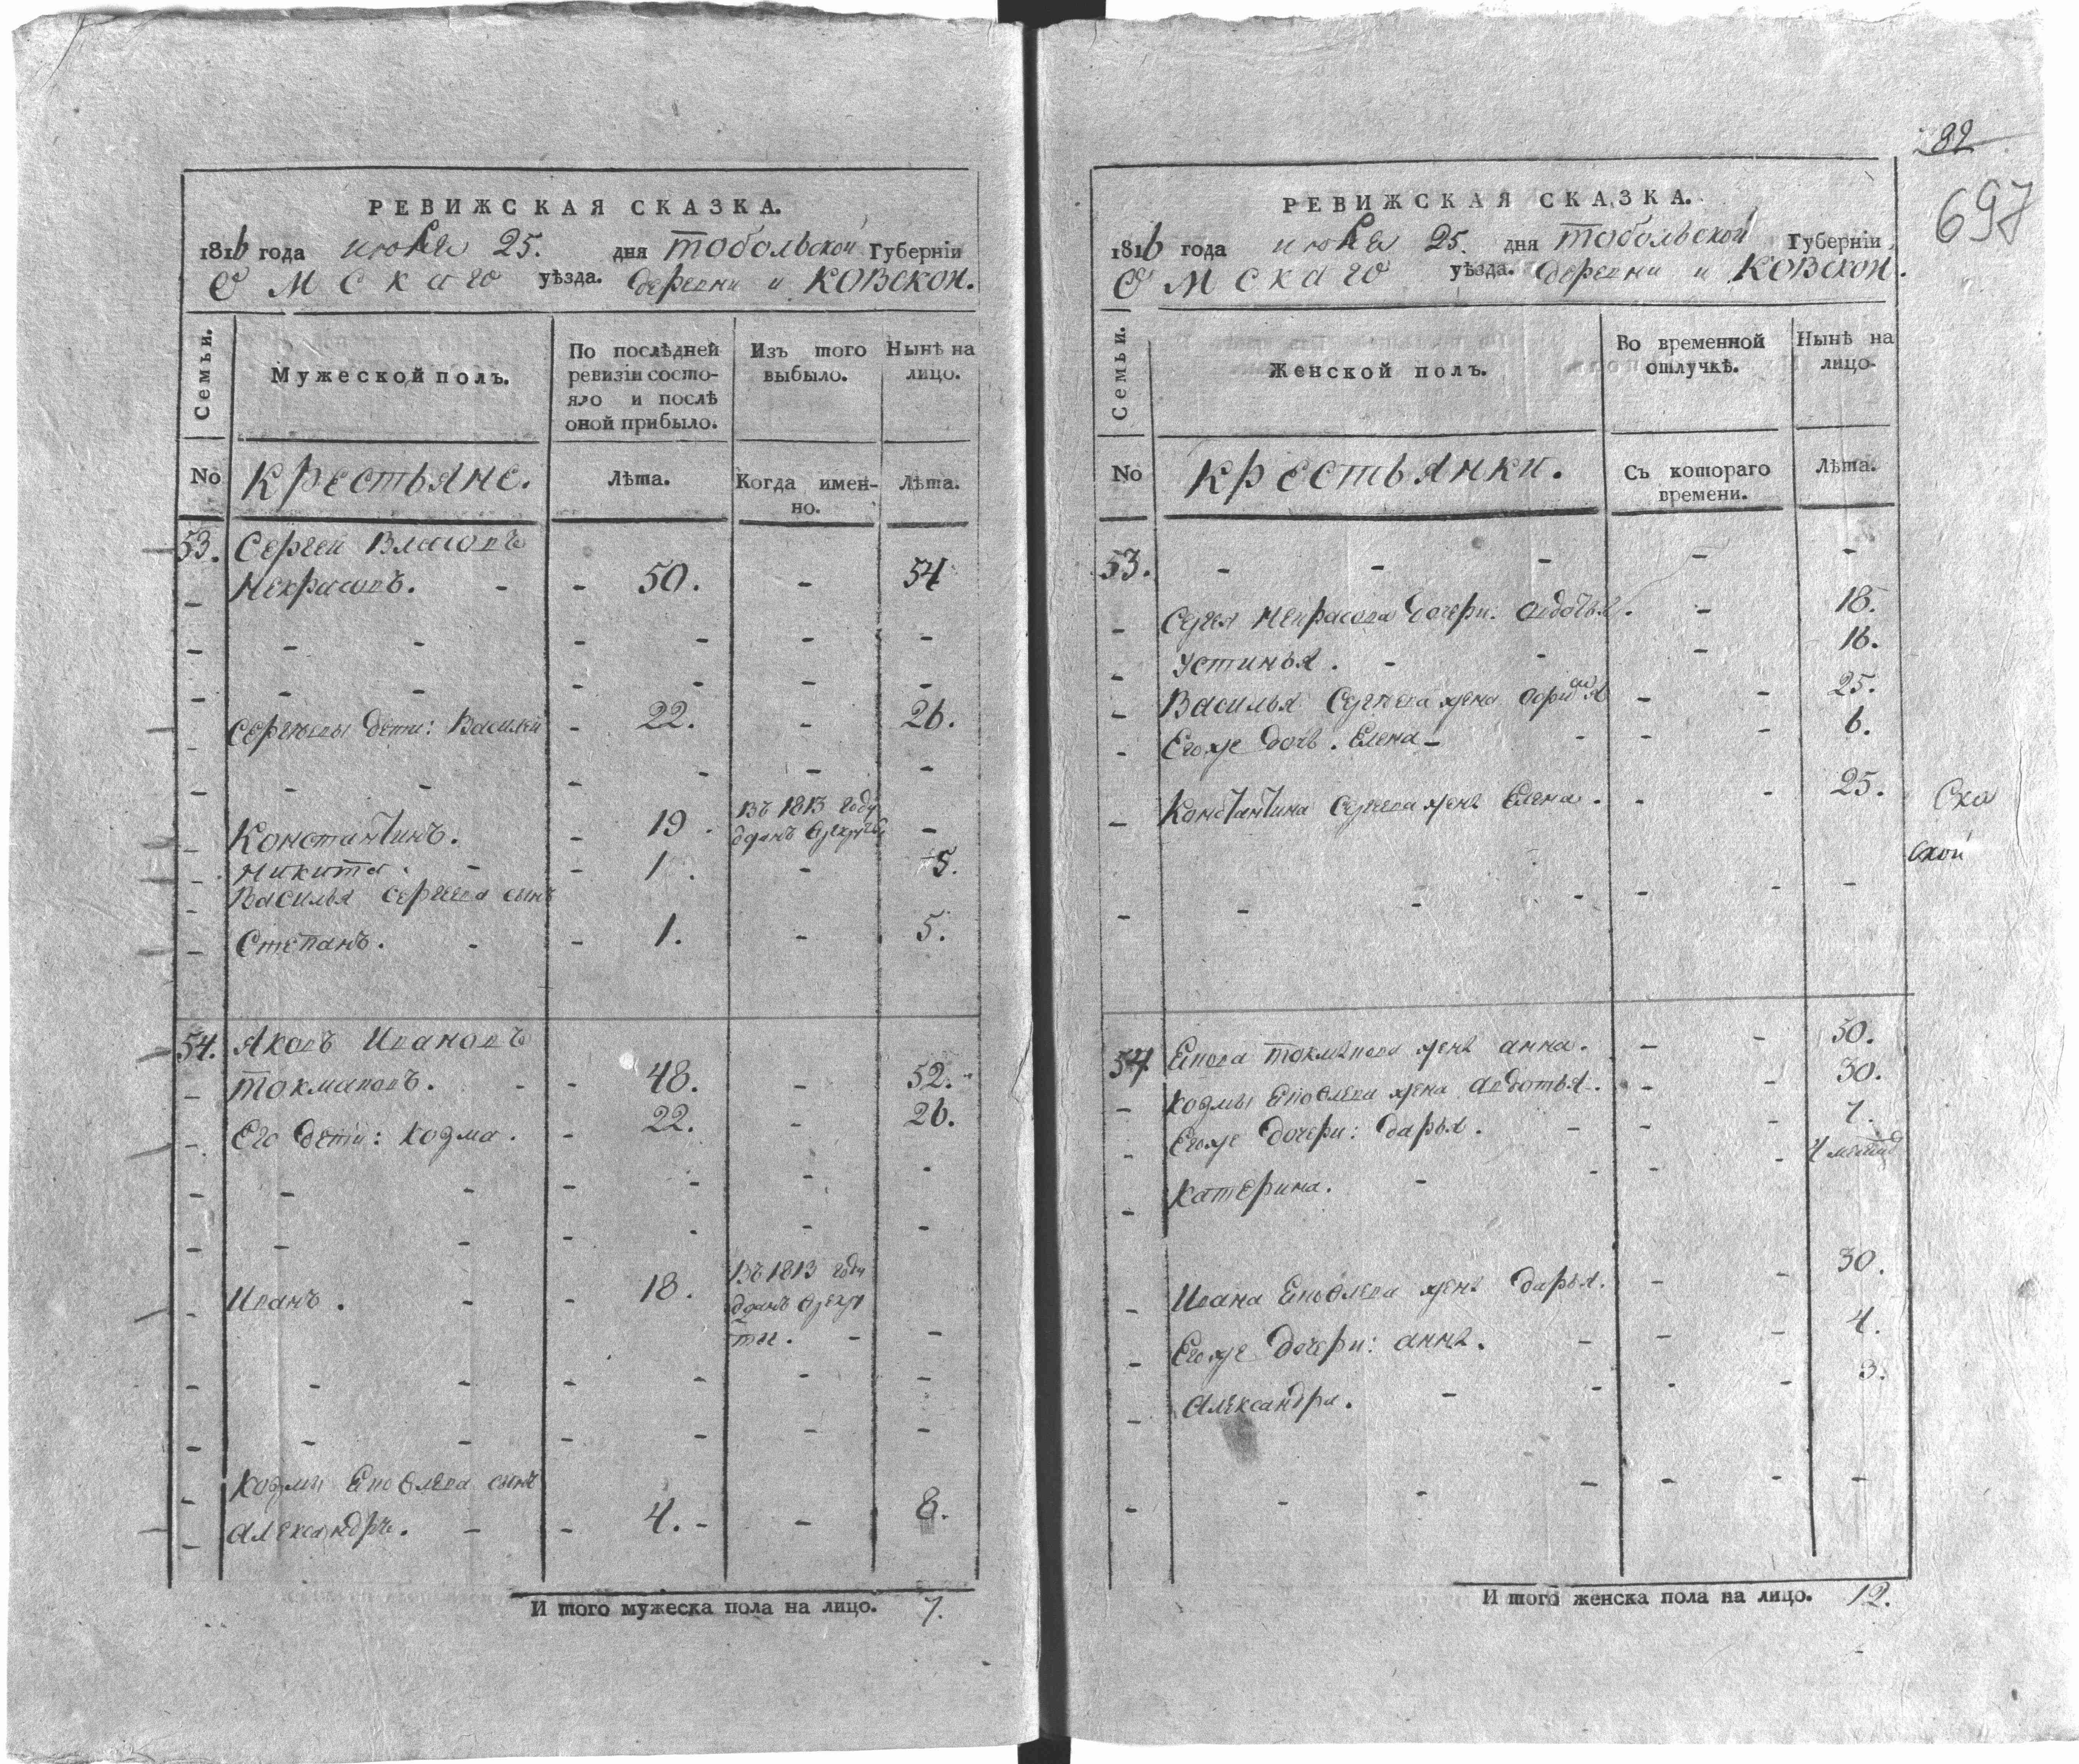 РЕВИЖСКАЯ СКАЗКА.
1816 года июля 25. дня Тобольской Губерніи
Омскаго уѣзда. деревни иковской.
Семьи.
Мужеской полъ.
По послѣдней ревизіи состояло и послѣ оной прибыло.
Изъ того выбыло.
Нынѣ на лицо.
No Крестьяне. Лѣта. Когда именно. Лѣта.
53. Сергей Власовъ
Некрасовъ. - - 50. - 54
Сергѣевы дети: Василей - 22. - 26.
Константинъ. - 19. въ 1813 году
отданъ врекруты -
Никита. - - 1. - 5.
Василья Сергеева сынъ
Степанъ. - - 1. - 5.
54. Яковъ Ивановъ
Токмаковъ. - - 48. - 52.
Его дети: Козма. - 22. - 26.
Иванъ. - - 18. въ 1813 году
отданъ врекру
ты. - -
Козмы Яковлева сынъ
Александръ. - - 4. - - 8.
И того мужеска пола на лицо. 7.
282
697
РЕВИЖСКАЯ СКАЗКА.
1816 года июля 25. дня Тобольской Губерніи
Омскаго уѣзда. деревни иковской.
Семьи.
Женской полъ.
Во временной отлучкѣ.
Нынѣ на лицо.
No Крестьянки. Съ котораго времени. Лѣта.
53. - - - - -
Сергея Некрасова дочери: Авдотья. - 18.
Устинья. - - - 16.
Василья Сергѣева жена - - 25.
Егоже дочь. Елена - - - - 6.
Константина Сергеева жена Елена. - - 25.
ской
54 Якова Токмакова жена анна. - - 50.
Козмы Яковлева жена Авдотья. - - 30.
Егоже дочери: Дарья. - - - 7.
Катерина. - - - -
Ивана Яковлева жена Дарья. - - 30.
Егоже дочери: анна. - - - 4.
Александра. - - - - 3.
И того женска пола на лицо. 12.